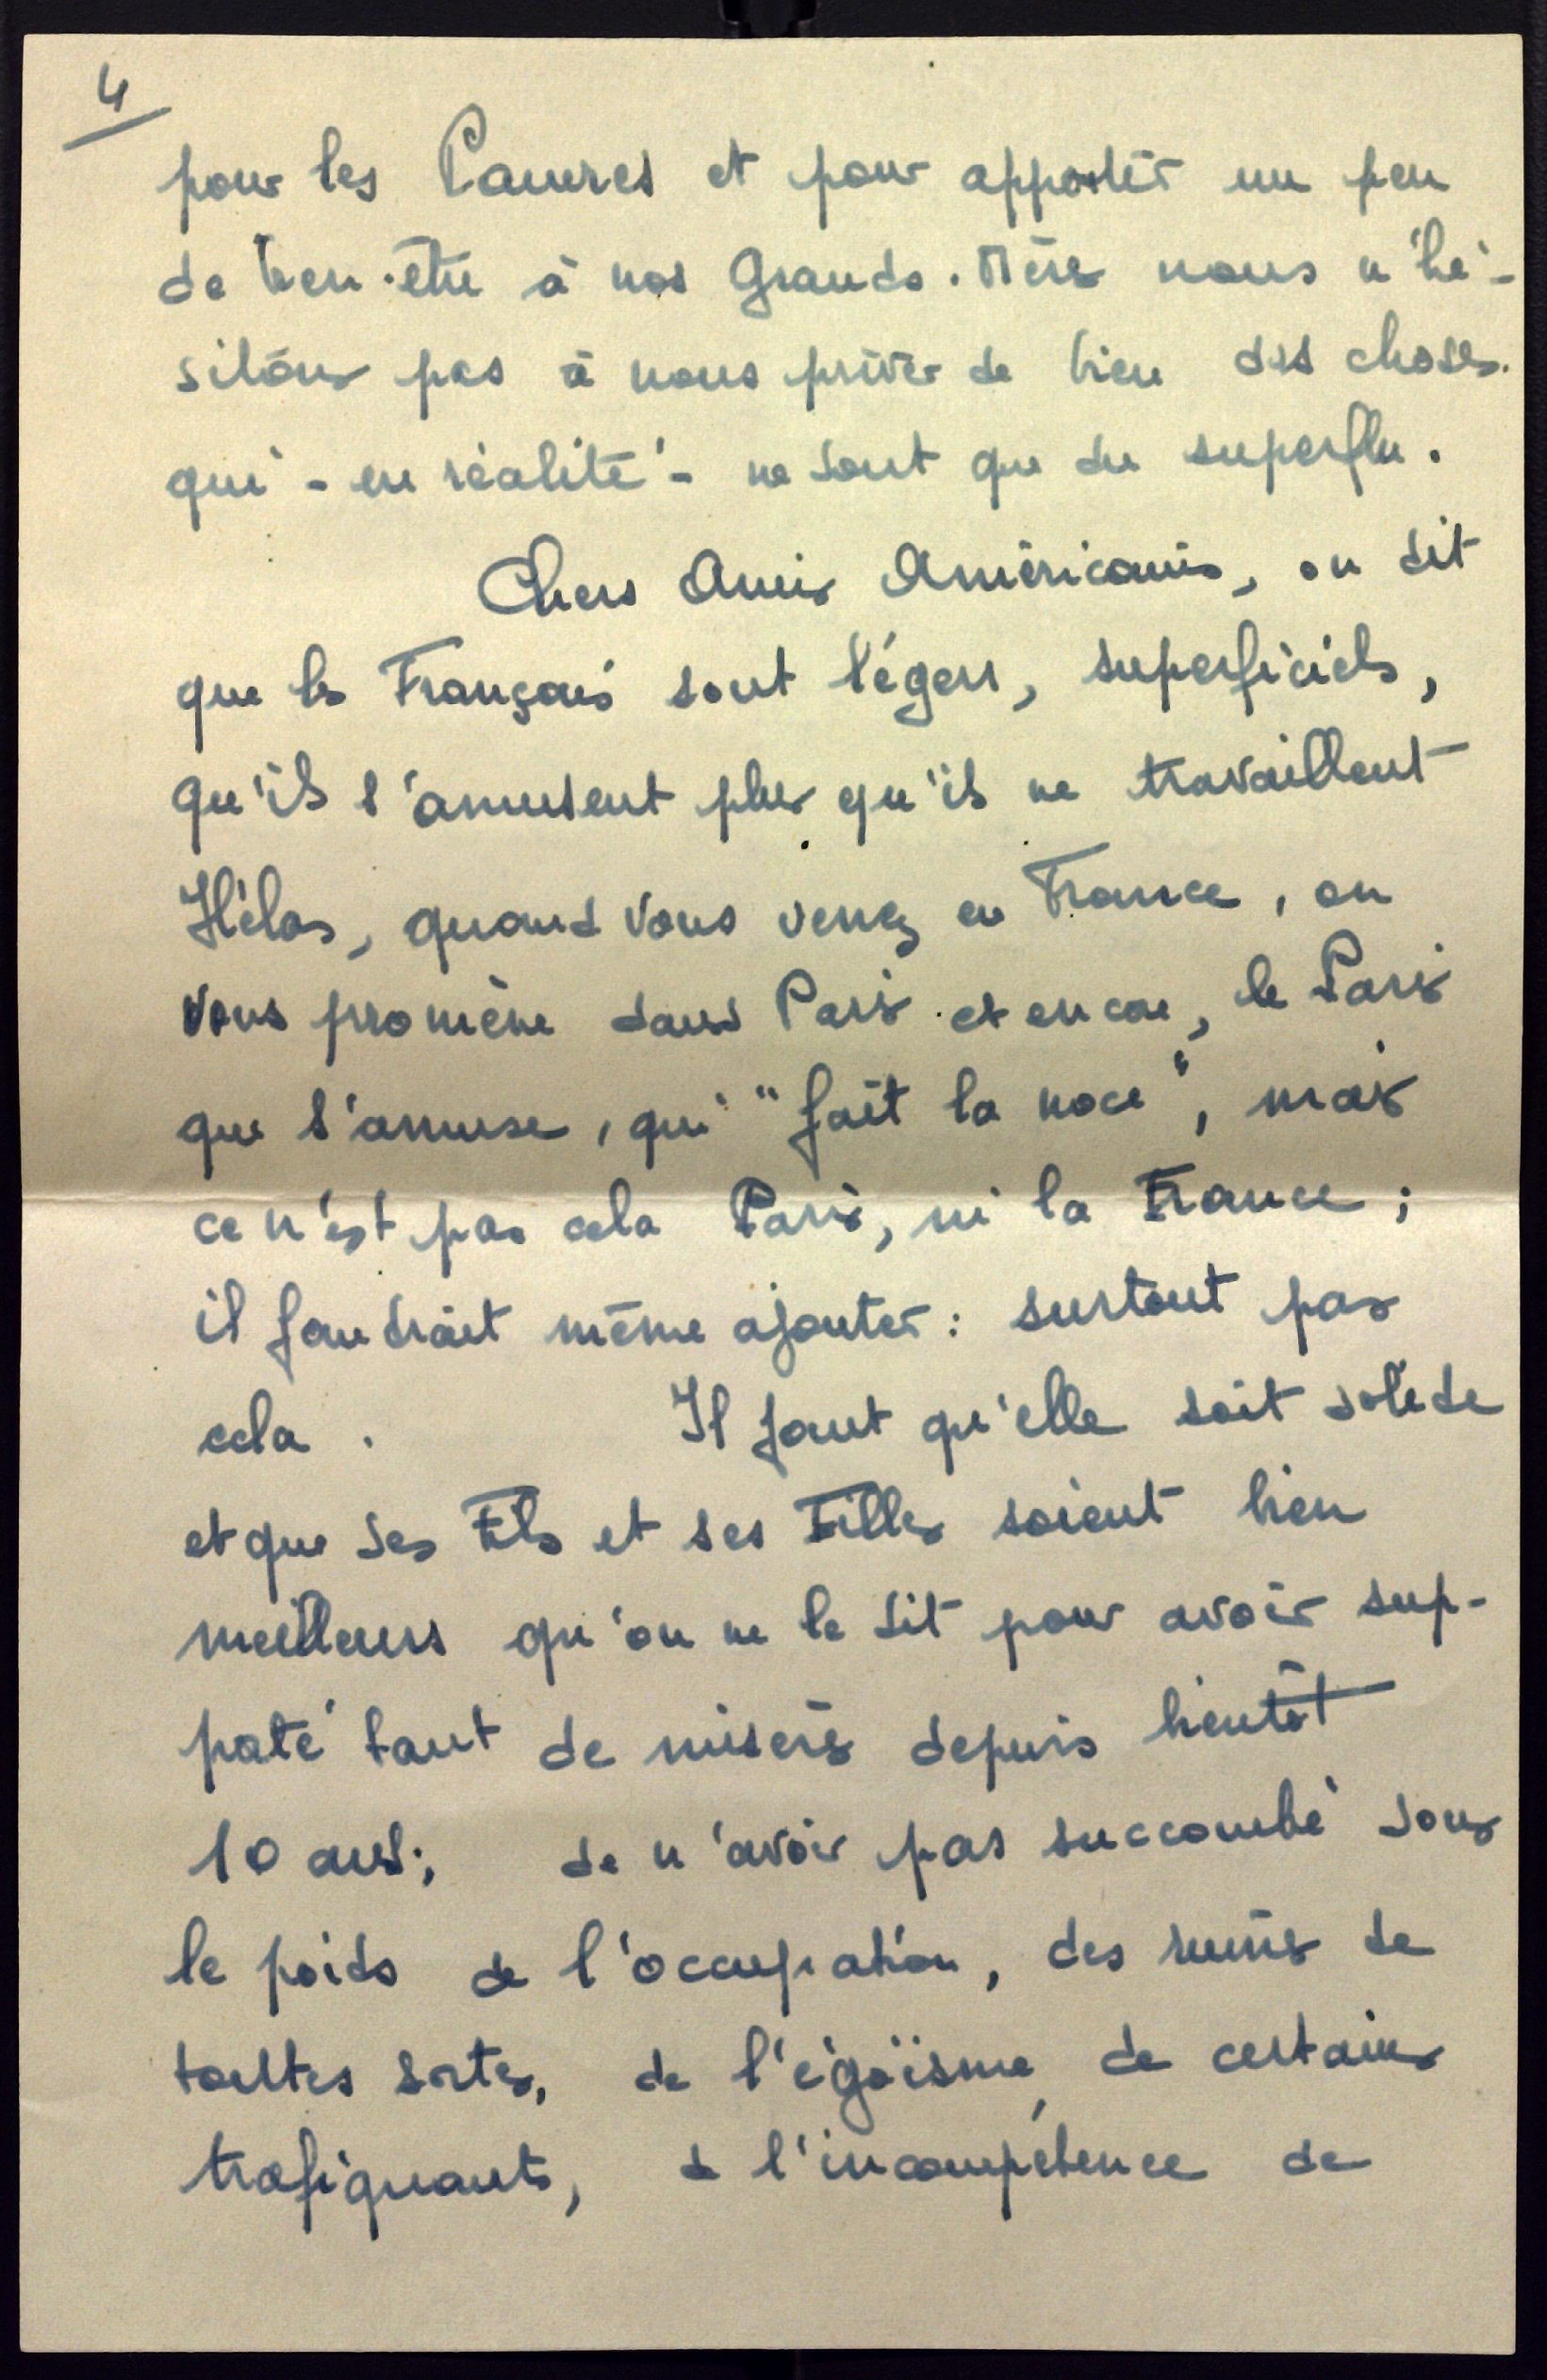 4
pour les Pauvres et pour apporter un peu
de bien-être à nos Grands-Mères nous n'hé-
sitons pas à nous priver de bien des choses
qui - en réalité - ne sont que du superflu.
Chers Amis Américains, on dit
que les Français sont légers, superficiels,
qu'ils s'amusent plus qu'ils ne travaillent
Hélas, quand vous venez en France, on
vous promène dans Paris et encore, le Paris
que s'amuse, qui "fait la noce", mais
ce n'est pas cela Paris, ni la France ;
il faudrait même ajouter : surtout pas
cela . Il faut qu'elle soit solide
et que ses Fils et ses Filles soient bien
meilleurs qu'on ne le dit pour avoir sup-
porté tant de misères depuis bientôt
10 ans ; de n'avoir pas succombé sous
le poids de l'occupation, des ruines de
toutes sortes, de l'égoïsme de certains
trafiquants, de l'incompétence de